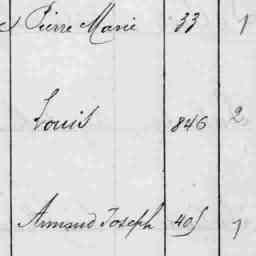 Pierre Marie 33 1
Louis 846 2
Armand Joseph 405 1